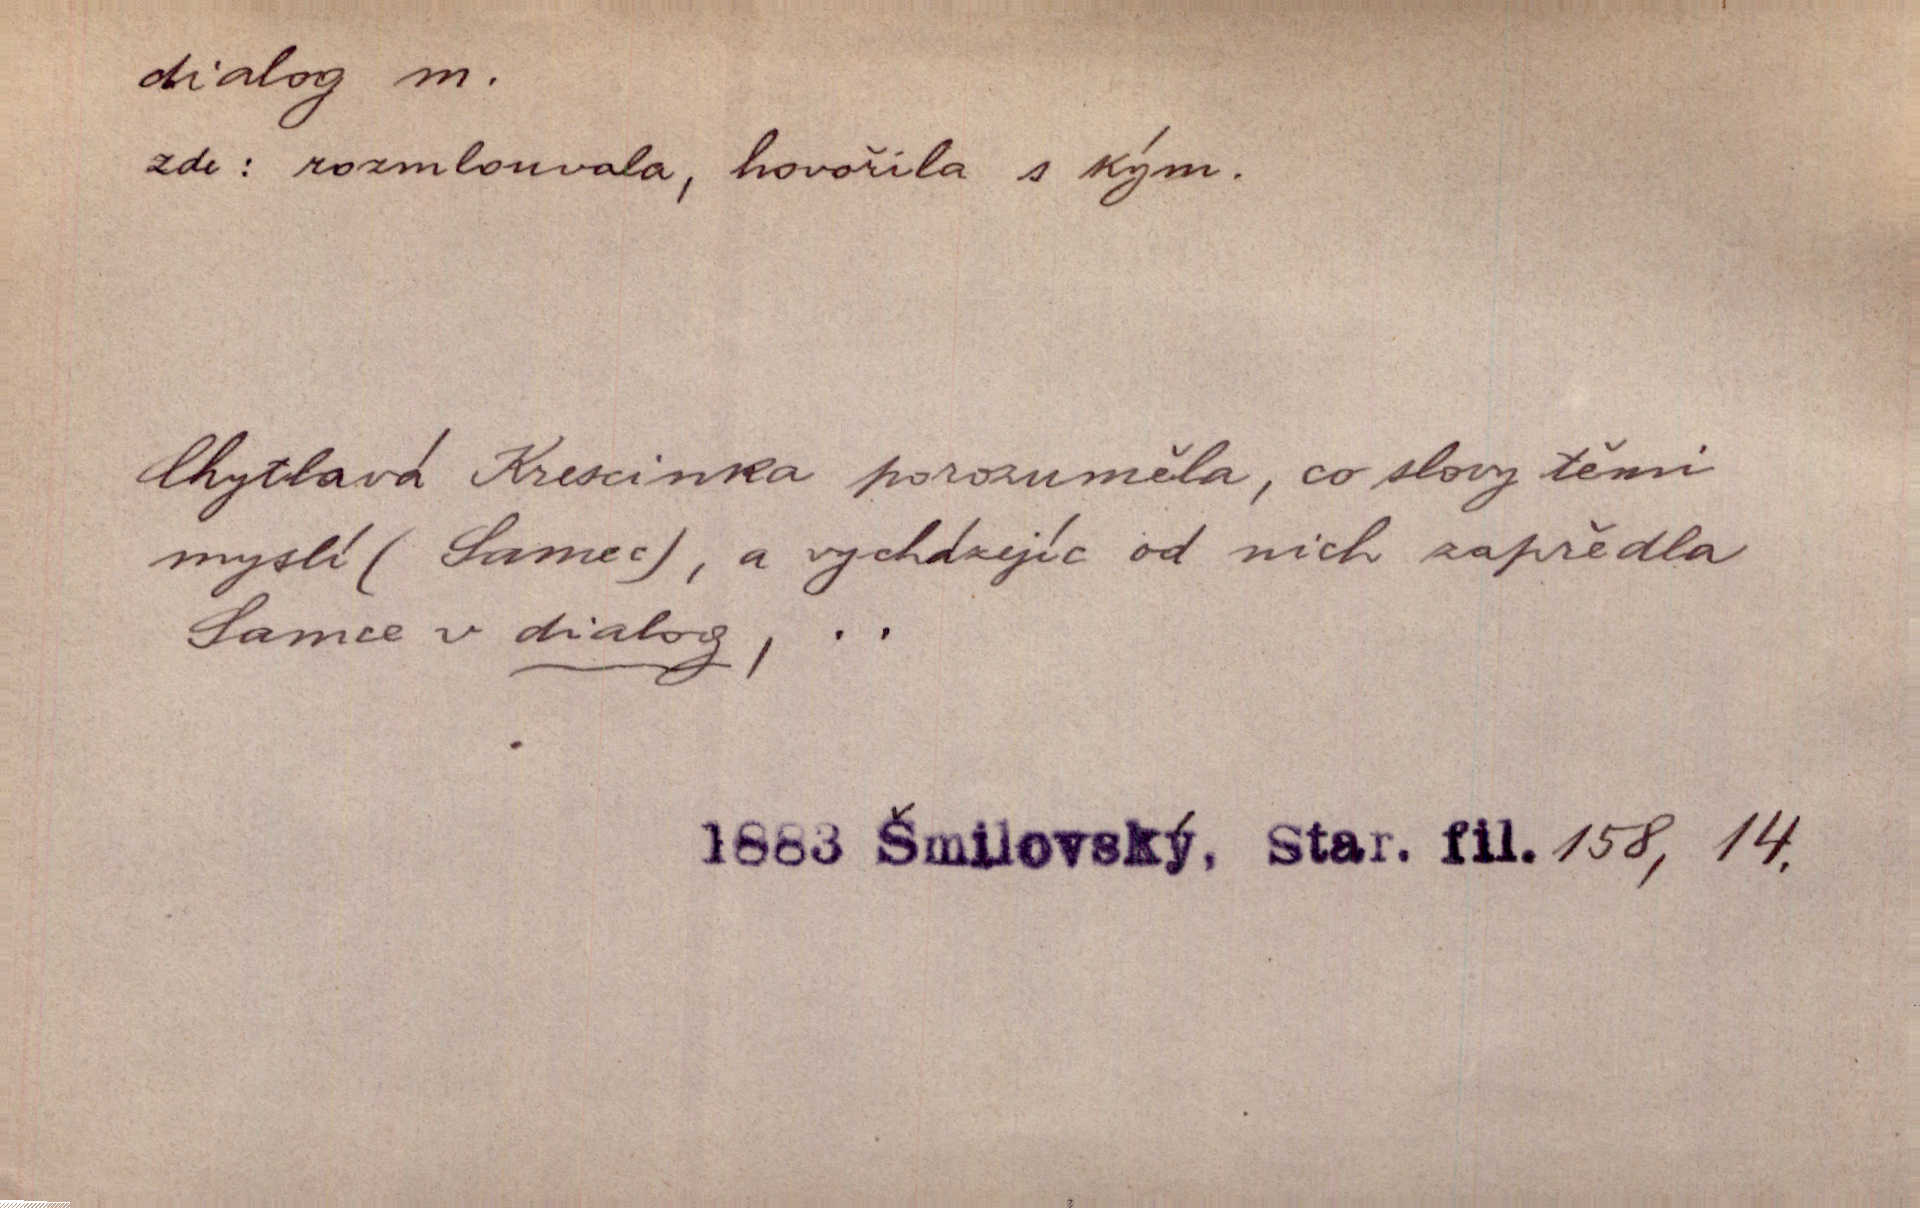 dialog m.
zde: rozmlouvala, hovořila s kým.
Chytlavá Krescinka porozuměla, co slovy těmi
myslí (Samec), a vycházejíc od nich zapředla
Samce v dialog, . .
1883 Šmilovský, Star. fil. 158, 14.